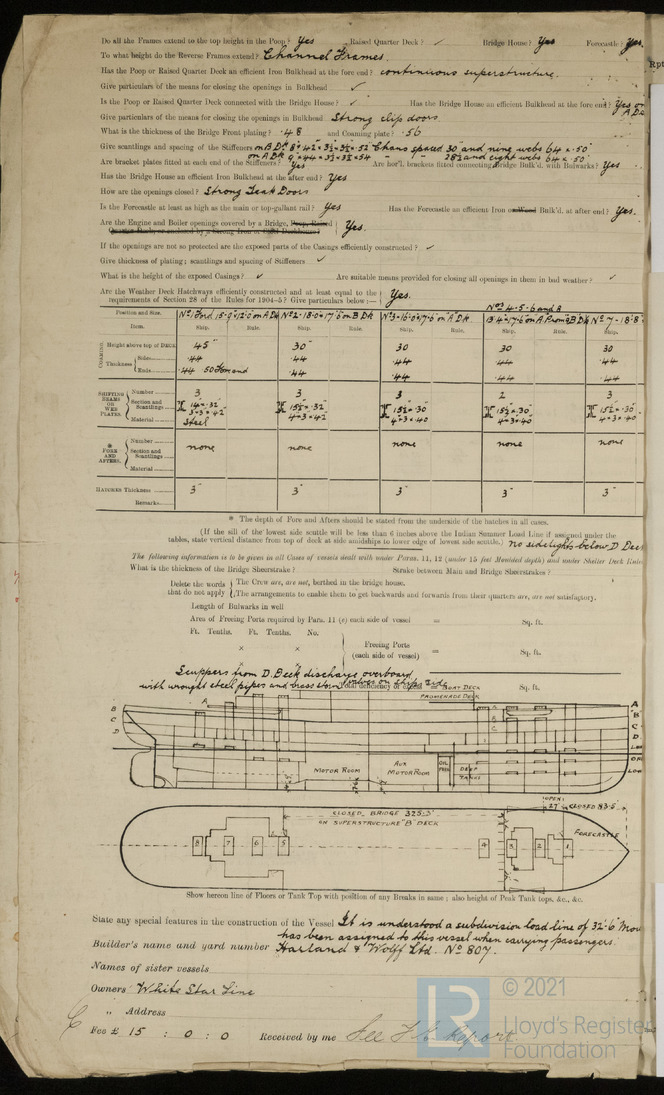 Do all the Frames extend to the top height in the Poop? Yes Raised Quarter Deck? ✓ Bridge House? Yes Forecastle? Yes.
To what height do the Reverse Frames extend? Channel Frames.
Has the Poop or Raised Quarter Deck an efficient Iron Bulkhead at the fore end? continuous superstructure.
Give particulars of the means for closing the openings in Bulkhead ✓
Is the Poop or Raised Quarter Deck connected with the Bridge House? ✓ Has the Bridge House an efficient Bulkhead at the fore end? Yes on
A Dk
Give particulars of the means for closing the openings in Bulkhead Strong clip doors.
What is the thickness of the Bridge Front plating? .48 and Coaming plate? .56
Give scantlings and spacing of the Stiffeners on B Dk 8 × 42 × 3½ × 3½ × .52 Chans spaced 30 and nine webs 64 × .50
on A Dk 9 × 44 × 3½ × 3½ × 54 " " 28½ and eight webs 64 × .50
Are bracket plates fitted at each end of the Stiffeners? Yes Are hor'l. brackets fitted connecting Bridge Bulk'd. with Bulwarks? Yes
Has the Bridge House an efficient Iron Bulkhead at the after end? Yes
How are the openings closed? Strong Teak Doors
Is the Forecastle at least as high as the main or top-gallant rail? Yes Has the Forecastle an efficient Iron or Wood Bulk'd. at after end? Yes.
Are the Engine and Boiler openings covered by a Bridge, Poop, Raised
Quarter Deck, or enclosed by a Strong Iron or Steel Deckhouse? Yes.
If the openings are not so protected are the exposed parts of the Casings efficiently constructed? ✓
Give thickness of plating; scantlings and spacing of Stiffeners ✓
What is the height of the exposed Casings? ✓ Are suitable means provided for closing all openings in them in bad weather? ✓
Are the Weather Deck Hatchways efficiently constructed and at least equal to the
requirements of Section 28 of the Rules for 1904-5? Give particulars below:— Yes.
Nos 4-5-6 and 8
Position and Size. No 1 Ford 15-9 × 12-0 on A Dk No 2-18-0 × 17-6 on B Dk No 3-15-0 × 17-6 on A Dk 13-4 × 17-6 on A Prom & B Dk No 7-18-8
Item. Ship. Rule. Ship. Rule. Ship. Rule. Ship. Rule. Ship.
COAMING Height above top of DECK 45" 30" 30 30 30
Thickness Sides .44 .44 .44 .44 .44
Ends .44 50 Forward .44 .44 .44 .44
SHIFTING BEAMS OR WEB PLATES. Number 3 3 3 2 3
Section and Scantlings 14 × .32 15½ × .32 15½ × .30 15½ × .30 15½ × .30
3 × 3 × .42 4 × 3 × .42 4 × 3 × .40 4 × 3 × .40 4 × 3 × .40
Material Steel
* FORE AND AFTERS. Number
Section and Scantlings none none none none none
Material
HATCHES Thickness 3" 3" 3" 3" 3"
Remarks
* The depth of Fore and Afters should be stated from the underside of the hatches in all cases.
(If the sill of the lowest side scuttle will be less than 6 inches above the Indian Summer Load Line if assigned under the
tables, state vertical distance from top of deck at side amidships to lower edge of lowest side scuttle.) no sidelights below D Deck
The following information is to be given in all Cases of vessels dealt with under Paras. 11, 12 (under 15 feet Moulded depth) and under Shelter Deck Rules
What is the thickness of the Bridge Sheerstrake? Strake between Main and Bridge Sheerstrakes?
Delete the words that do not apply
The Crew are, are not, berthed in the bridge house.
The arrangements to enable them to get backwards and forwards from their quarters are, are not satisfactory.
Length of Bulwarks in well
Area of Freeing Ports required by Para. 11 (e) each side of vessel = Sq. ft.
Ft. Tenths. Ft. Tenths. No.
× ×
Freeing Ports
(each side of vessel) = Sq. ft.
Scuppers from D. Deck discharge overboard
with wrought steel pipes and brass storm valves on ships side
Total deficiency or excess = Sq. ft.
BOAT DECK
PROMENADE DECK
A
B
C
D
MOTOR ROOM
AUX MOTOR ROOM
OIL FUEL
DEEP TANKS
A
B
C
D
OPEN
27'
CLOSED 83.5'
CLOSED BRIDGE 325.3'
ON SUPERSTRUCTURE "B" DECK
FORECASTLE
8 7 6 5 4 3 2 1
Show hereon line of Floors or Tank Top with position of any Breaks in same; also height of Peak Tank tops, &c., &c.
State any special features in the construction of the Vessel It is understood a subdivision load line of 32'-6"
has been assigned to this vessel when carrying passengers.
Builder's name and yard number Harland & Wolff Ltd. No 807.
Names of sister vessels
Owners White Star Line
" Address
Fee £ 15 : 0 : 0 Received by me See F.E. Report.
LR
© 2021
Lloyd's Register
Foundation